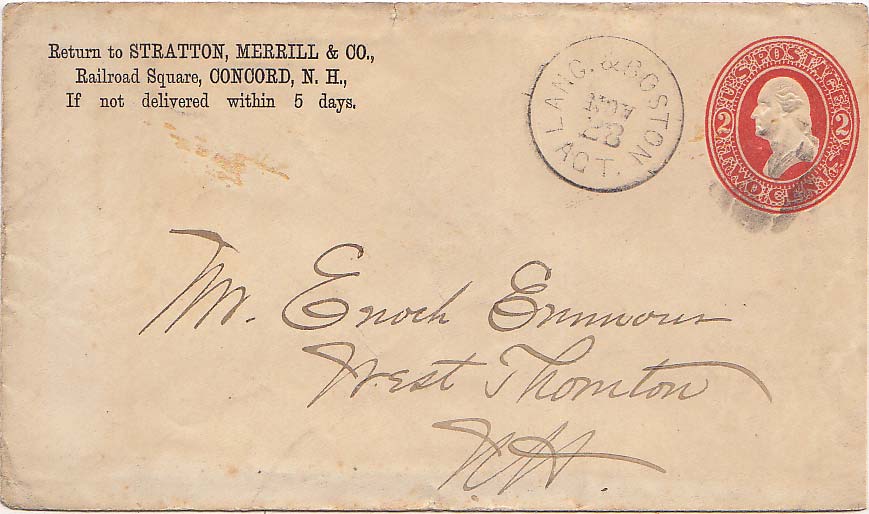 Return to STRATTON, MERRILL & CO.,
Railroad Square, CONCORD, N. H.,
If not delivered within 5 days.
LANC. & BOSTON
NOV
28
AGT.
U.S. POSTAGE
2 2
Mr. Enoch Emmons
West Thornton
N.H.